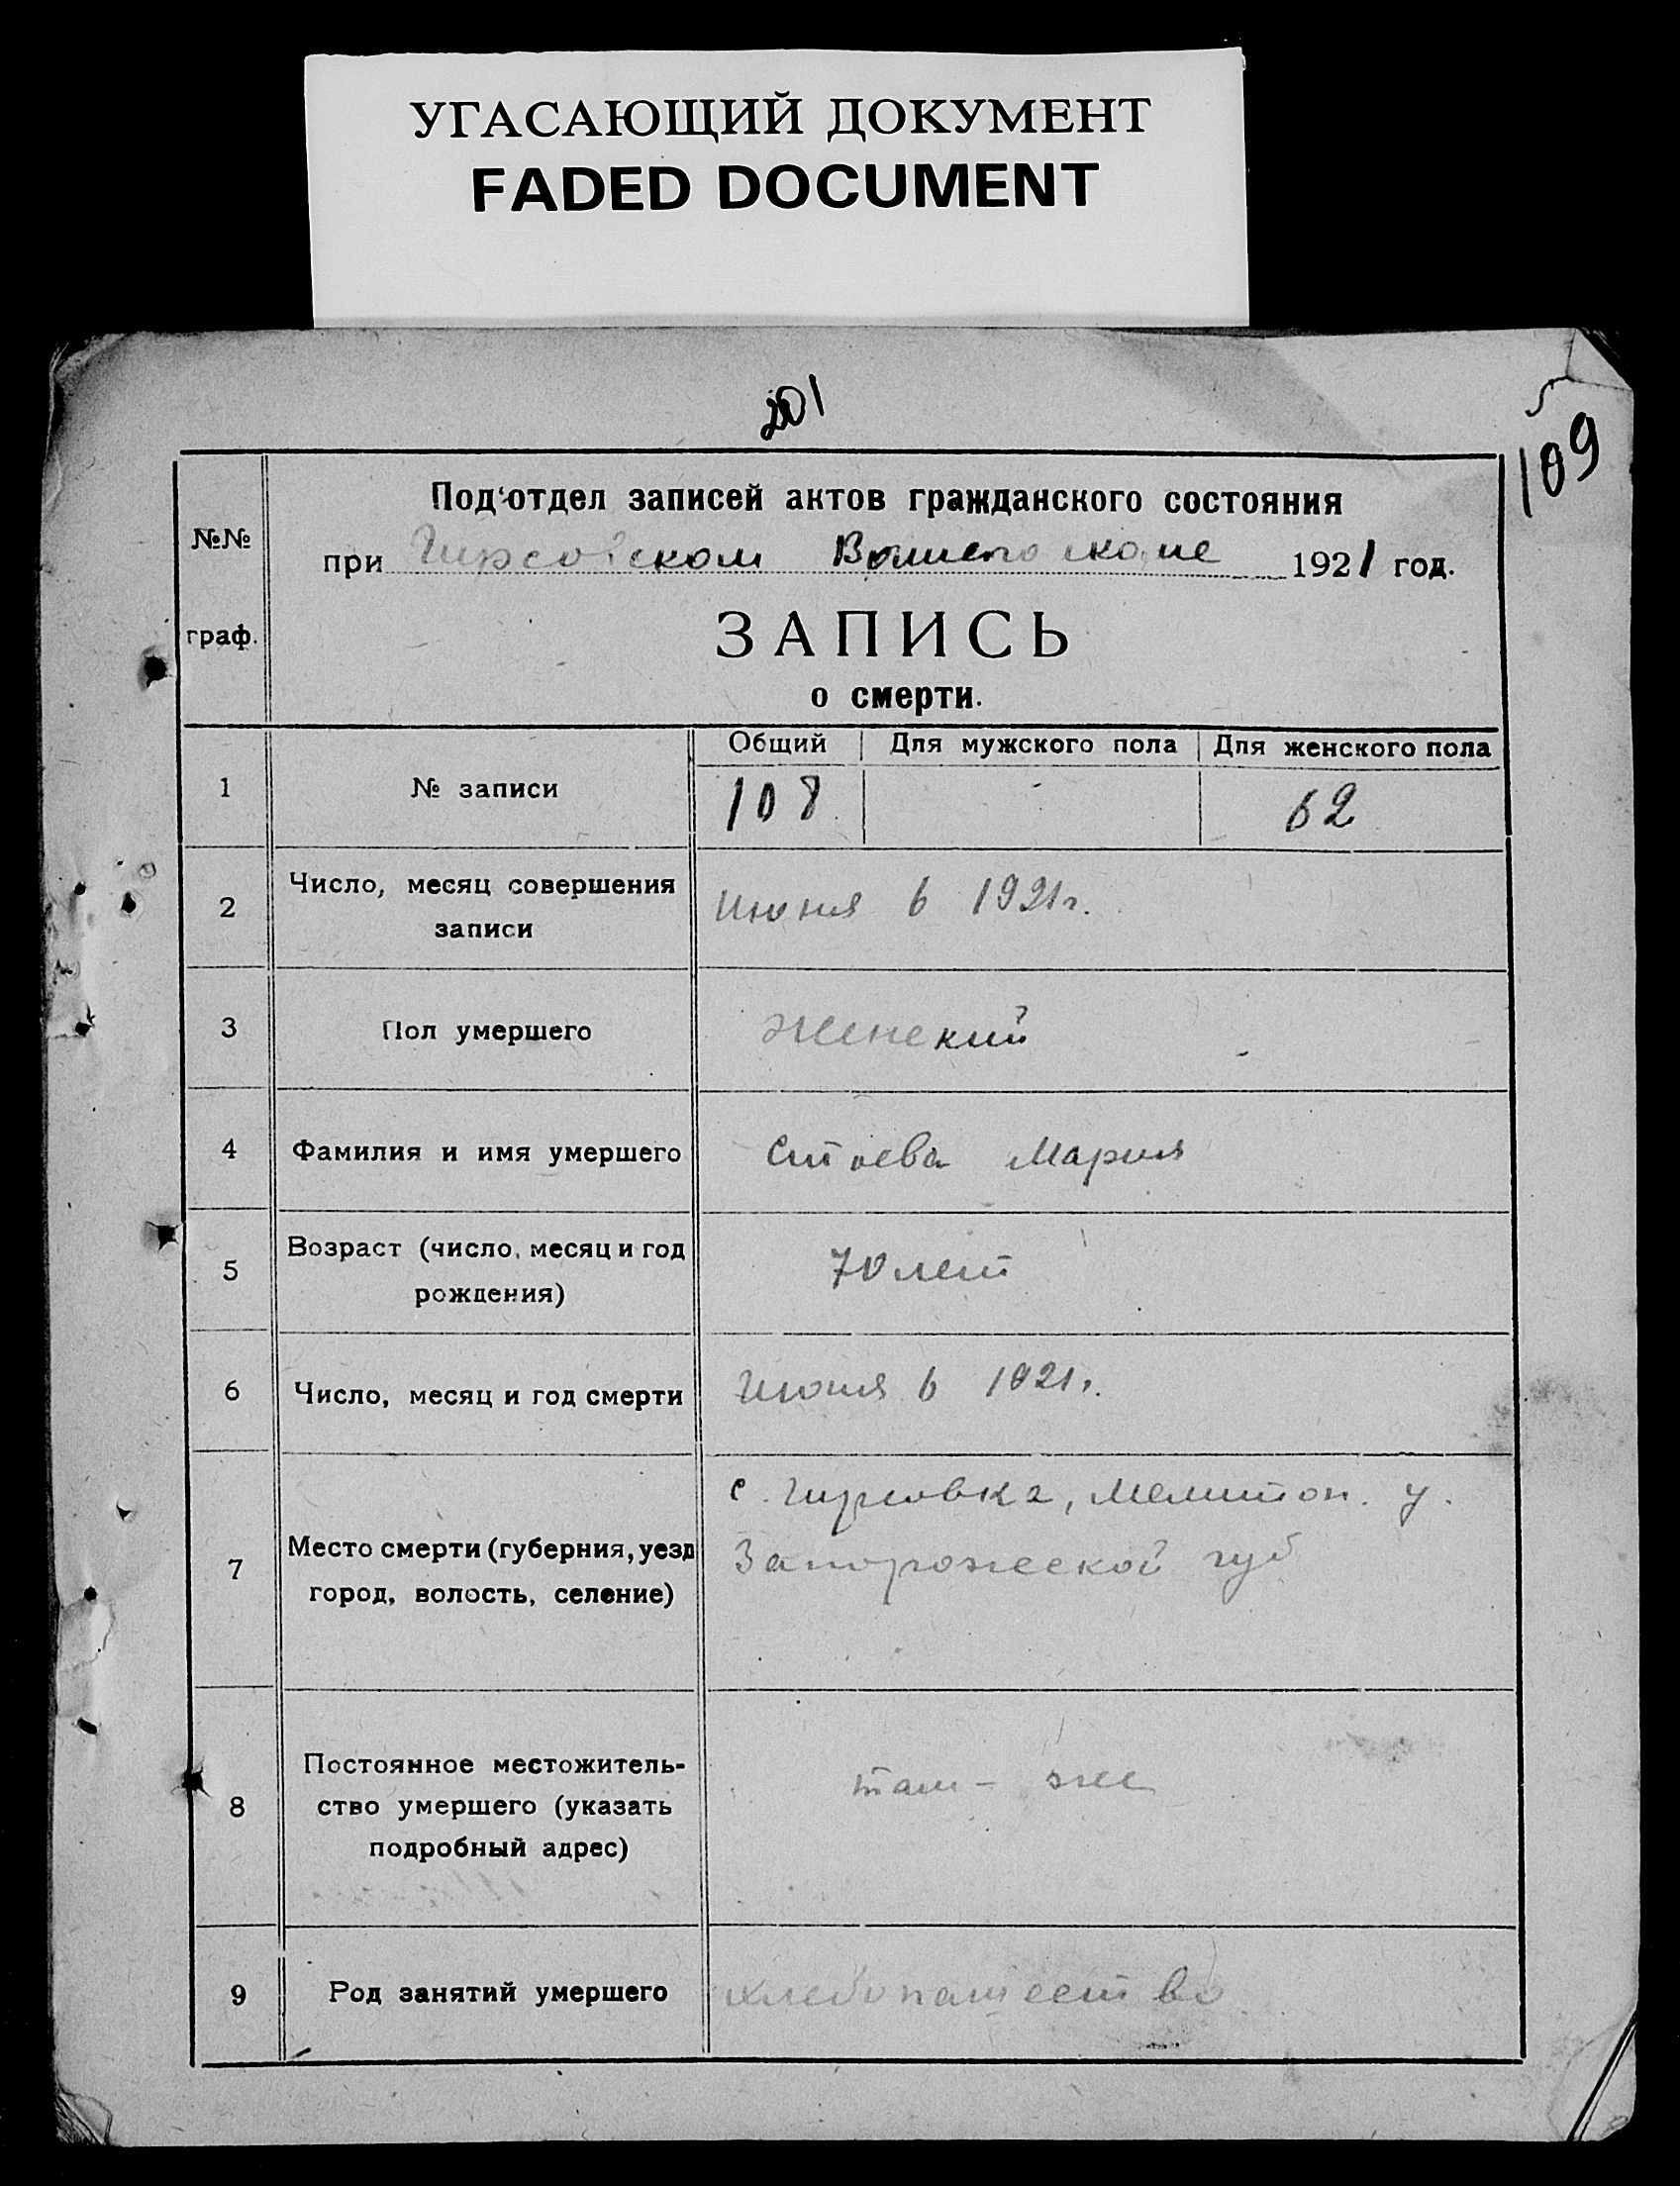 УГАСАЮЩИЙ ДОКУМЕНТ
FADED DOCUMENT
201
5
109
Под‘отдел записей актов гражданского состояния
№№
при Гирсовском 1921 год.
граф.
ЗАПИСЬ
о смерти.
Общий Для мужского пола Для женского пола
1 № записи 108 - 62
2 Число, месяц совершения Июня 6 1921г.
записи
3 Пол умершего Женский
4 Фамилия и имя умершего Стоева Мария
5 Возраст (число, месяц и год 70 лет
рождения)
6 Число, месяц и год смерти Июня 6 1921г.
с. Гирсовка, Мелитоп. у.
7 Место смерти (губерния, уезд Запорожской губ
город, волость, селение)
Постоянное местожитель-
8 ство умершего (указать там - же
подробный адрес)
9 Род занятий умершего хлебопашество